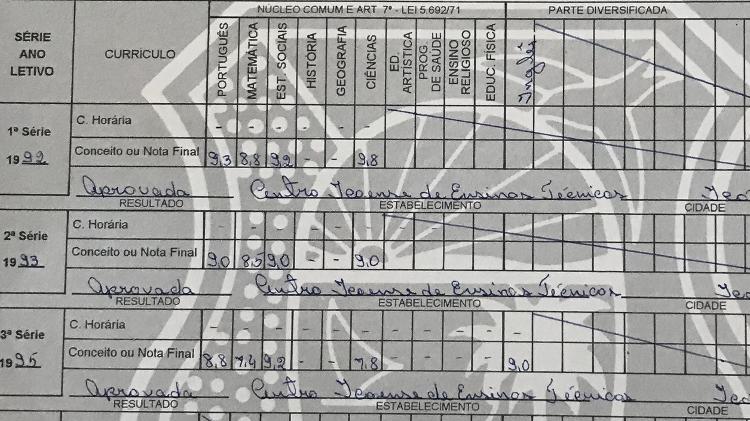 NÚCLEO COMUM E ART 7º - LEI 5.692/71 PARTE DIVERSIFICADA
SÉRIE ANO LETIVO CURRÍCULO PORTUGUÊS MATEMÁTICA EST. SOCIAIS HISTÓRIA GEOGRAFIA CIÊNCIAS ED. ARTÍSTICA PROG. DE SAÚDE ENSINO RELIGIOSO EDUC. FÍSICA Inglês
1ª Série C. Horária - - - - - -
1992 Conceito ou Nota Final 9,3 8,8 9,2 - - 9,8
Aprovada Centro Icoense de Ensinos Técnicos Ico
RESULTADO ESTABELECIMENTO CIDADE
2ª Série C. Horária - - - - - -
1993 Conceito ou Nota Final 9,0 8,5 9,0 - - 9,0
Aprovada Centro Icoense de Ensinos Técnicos Ico
RESULTADO ESTABELECIMENTO CIDADE
3ª Série C. Horária - - - - - - - - - - -
1995 Conceito ou Nota Final 8,8 7,4 9,2 - - 7,8 - - - - 9,0
Aprovada Centro Icoense de Ensinos Técnicos Ico
RESULTADO ESTABELECIMENTO CIDADE